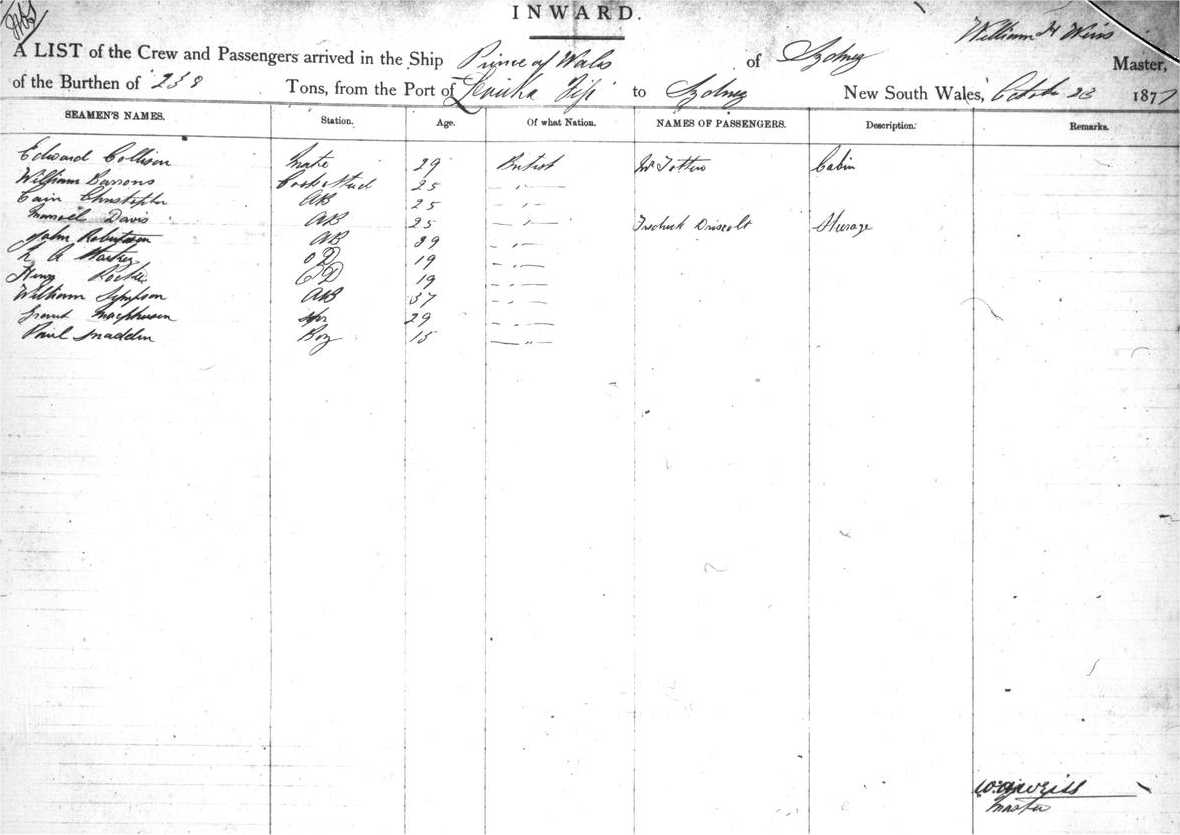 INWARD.
William H Weiss
A LIST of the Crew and Passengers arrived in the Ship Prince of Wales of Sydney Master,
of the Burthen of 258 Tons, from the Port of Levuka Fiji to Sydney New South Wales, October 23 1877
SEAMEN'S NAMES. Station. Age. Of what Nation. NAMES OF PASSENGERS. Description. Remarks.
Edward Collison Mate 29 British Mr Cabin
William Barrons Cook & Stud 25 — " —
Cain Christopher AB 25 — " —
Manuel Davis AB 25 — " — Fredrick Driscolt Steerage
John Robertson AB 39 — " —
OD 19 — " —
OD 19 — " —
William Sympson AB 37 — " —
Grant Macpherson 29 — " —
Paul Madden Boy 15 — " —
W H Weiss
Master